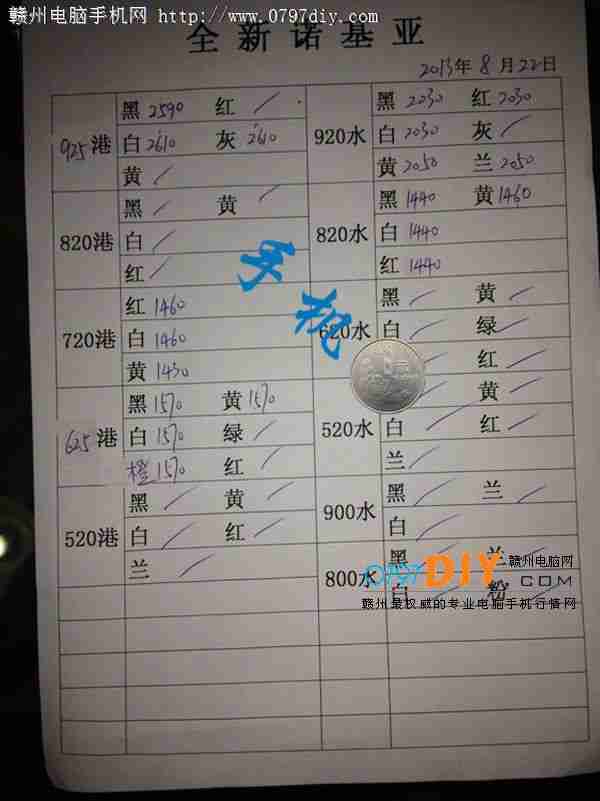 赣州电脑手机网 http://www.0797diy.com
全新诺基亚
2013年8月22日
925港
黑 2590 红 /
白 2610 灰 2610
黄 /
820港
黑 / 黄 /
白 /
红 /
720港
红 1460
白 1460
黄 1430
625港
黑 1570 黄 1570
白 1570 绿 /
橙 1570 红 /
520港
黑 / 黄 /
白 / 红 /
兰 /
920水
黑 2030 红 2030
白 2030 灰 /
黄 2050 兰 2050
820水
黑 1440 黄 1460
白 1440
红 1440
620水
黑 / 黄 /
白 / 绿 /
红 /
520水
黄 /
白 / 红 /
兰 /
900水
黑 / 兰 /
白 /
800水
黑 / 兰 /
白 / 粉 /
手机
0797DIY.COM 赣州电脑网
赣州最权威的专业电脑手机行情网